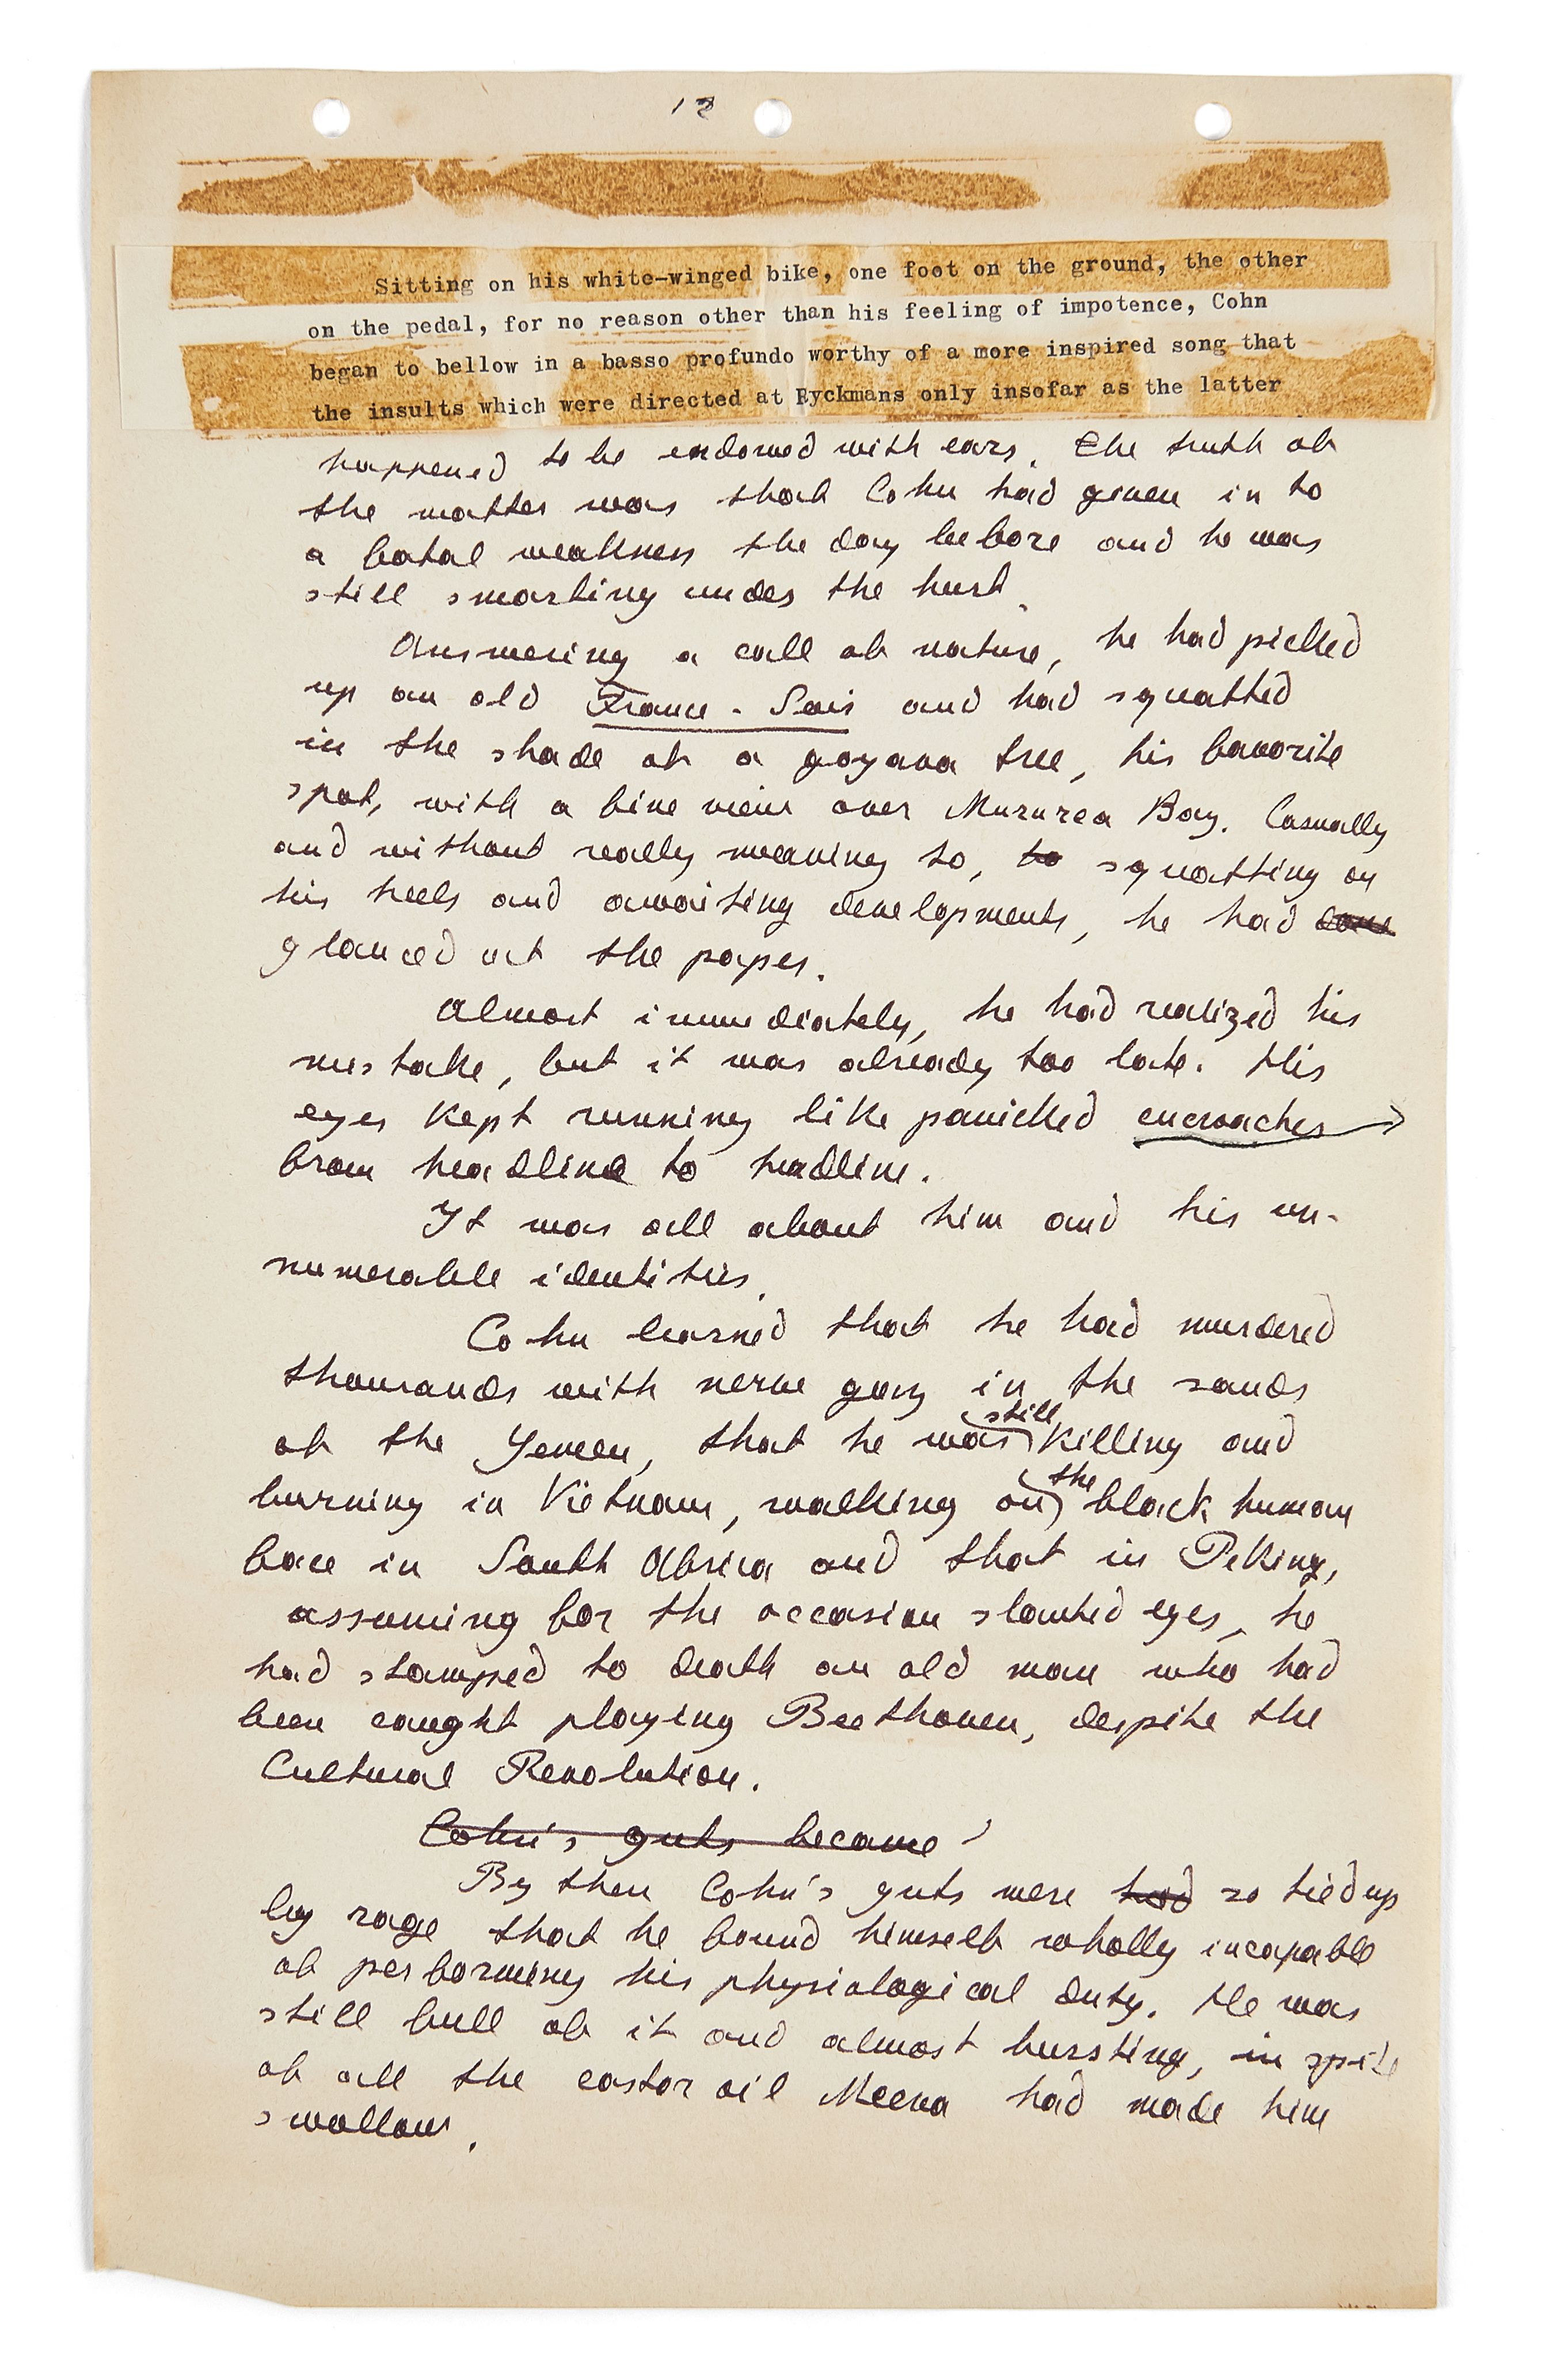 12
Sitting on his white-winged bike, one foot on the ground, the other
on the pedal, for no reason other than his feeling of impotence, Cohn
began to bellow in a basso profundo worthy of a more inspired song that
the insults which were directed at Ryckmans only insofar as the latter
happened to be endowed with ears. The truth of
the matter was that Cohn had given in to
a fatal weakness the day before and he was
still smarting under the hurt.
Answering a call of nature, he had picked
up an old France-Soir and had squatted
in the shade of a goyava tree, his favorite
spot, with a fine view over Mururea Bay. Casually
and without really meaning to, to squatting on
his heels and awaiting developments, he had done
glanced at the paper.
Almost immediately, he had realized his
mistake, but it was already too late. His
eyes kept running like panicked cucroaches
from headline to headline.
It was all about him and his un-
numerable identities.
Cohn learned that he had murdered
thousands with nerve gas in the sands
of the Yemen, that he was still killing and
burning in Vietnam, walking on the black human
face in South Africa and that in Peking,
assuming for the occasion slanted eyes, he
had stamped to death an old man who had
been caught playing Beethoven, despite the
Cultural Revolution.
Cohn's guts became
By then Cohn's guts were had so tied up
by rage that he found himself wholly incapable
of performing his physiological duty. He was
still full of it and almost bursting, in spite
of all the castor oil Meeva had made him
swallow.